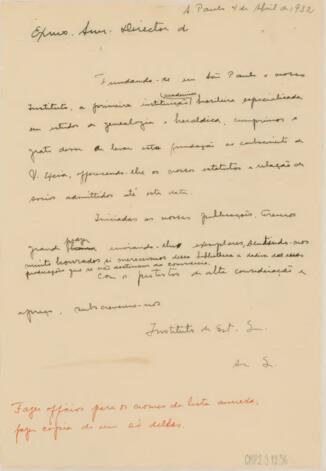 S. Paulo 4 de Abril de 1932
Exmo. Snr. Director d
Fundando-se em São Paulo o nosso
Instituto, a primeira instituição (academica) brasileira especializada
em estudos de genealogia e heraldica, cumprimos o
grato dever de levar esta fundação ao conhecimento de
V. Excia, offerecendo-lhe os nossos estatutos e relação de
socios admittidos até esta data.
Iniciadas as nossas publicações, teremos
grande prazer enviando-lhes exemplares, sentindo-nos
muito honrados si merecermos dessa bibliotheca a dadiva das suas
publicações que se não destinam ao commercio.
Com os protestos de alta consideração e
apreço, subscrevemo-nos
Instituto de Est. G.
Fazer officios para os nomes da lista annexa,
fazer cópia de um só delles.
CMP2.3.1956